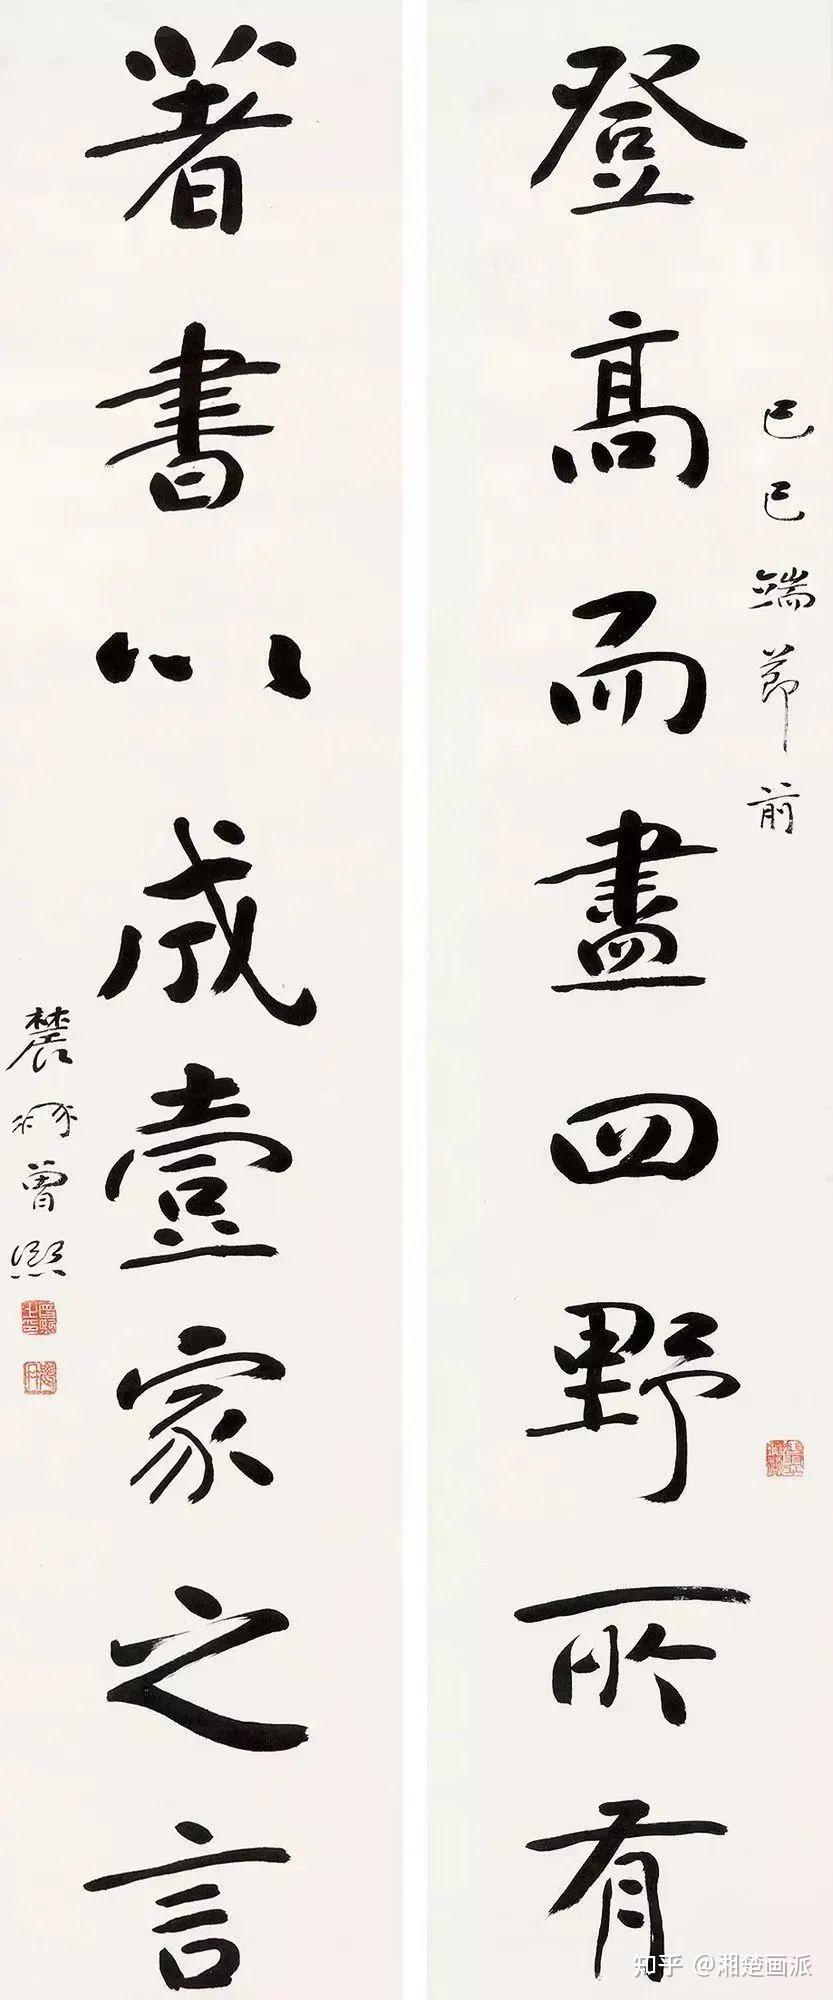 登高而盡四野所有
己巳端節前
著書以成壹家之言
農髯曾熙
知乎 @湘楚画派